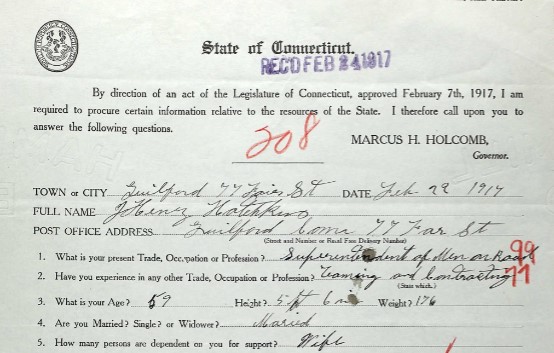 State of Connecticut.
REC'D FEB 24 1917
By direction of an act of the Legislature of Connecticut, approved February 7th, 1917, I am
required to procure certain information relative to the resources of the State. I therefore call upon you to
answer the following questions.
208
MARCUS H. HOLCOMB,
Governor.
TOWN or CITY Guilford 77 Fair St DATE Feb 22 1917
FULL NAME J Henry Hotchkiss
POST OFFICE ADDRESS Guilford Conn 77 Far St
(Street and Number or Rural Free Delivery Number)
1. What is your present Trade, Occupation or Profession? Superintendent of Men on Road 99
2. Have you experience in any other Trade, Occupation or Profession? Teaming and Contracting 77
(State which.)
3. What is your Age? 59 Height? 5 ft 6 in Weight? 176
4. Are you Married? Single? or Widower? Maried
5. How many persons are dependent on you for support? Wife